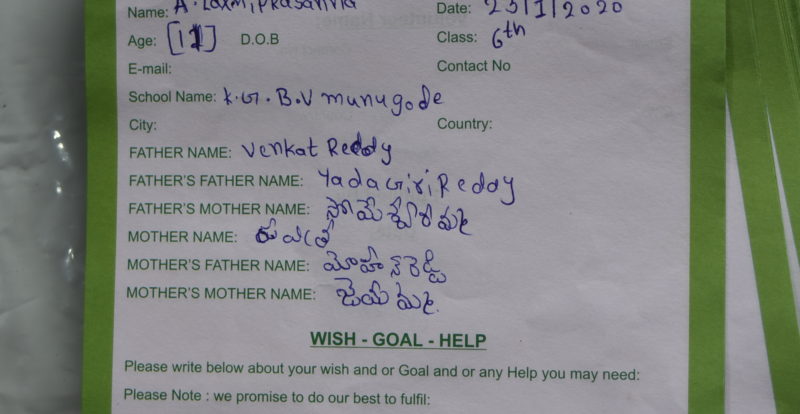 Name: A. Laxmi, Prasanna Date: 23/1/2020
Age: [11] D.O.B Class: 6th
E-mail: Contact No
School Name: K.G.B.V munugode
City: Country:
FATHER NAME: Venkat Reddy
FATHER'S FATHER NAME: YadaGiri Reddy
FATHER'S MOTHER NAME: సోమేశ్వరమ్మ
MOTHER NAME:
MOTHER'S FATHER NAME: మోహన్ రెడ్డి
MOTHER'S MOTHER NAME: జయమ్మ.
WISH - GOAL - HELP
Please write below about your wish and or Goal and or any Help you may need:
Please Note : we promise to do our best to fulfil: